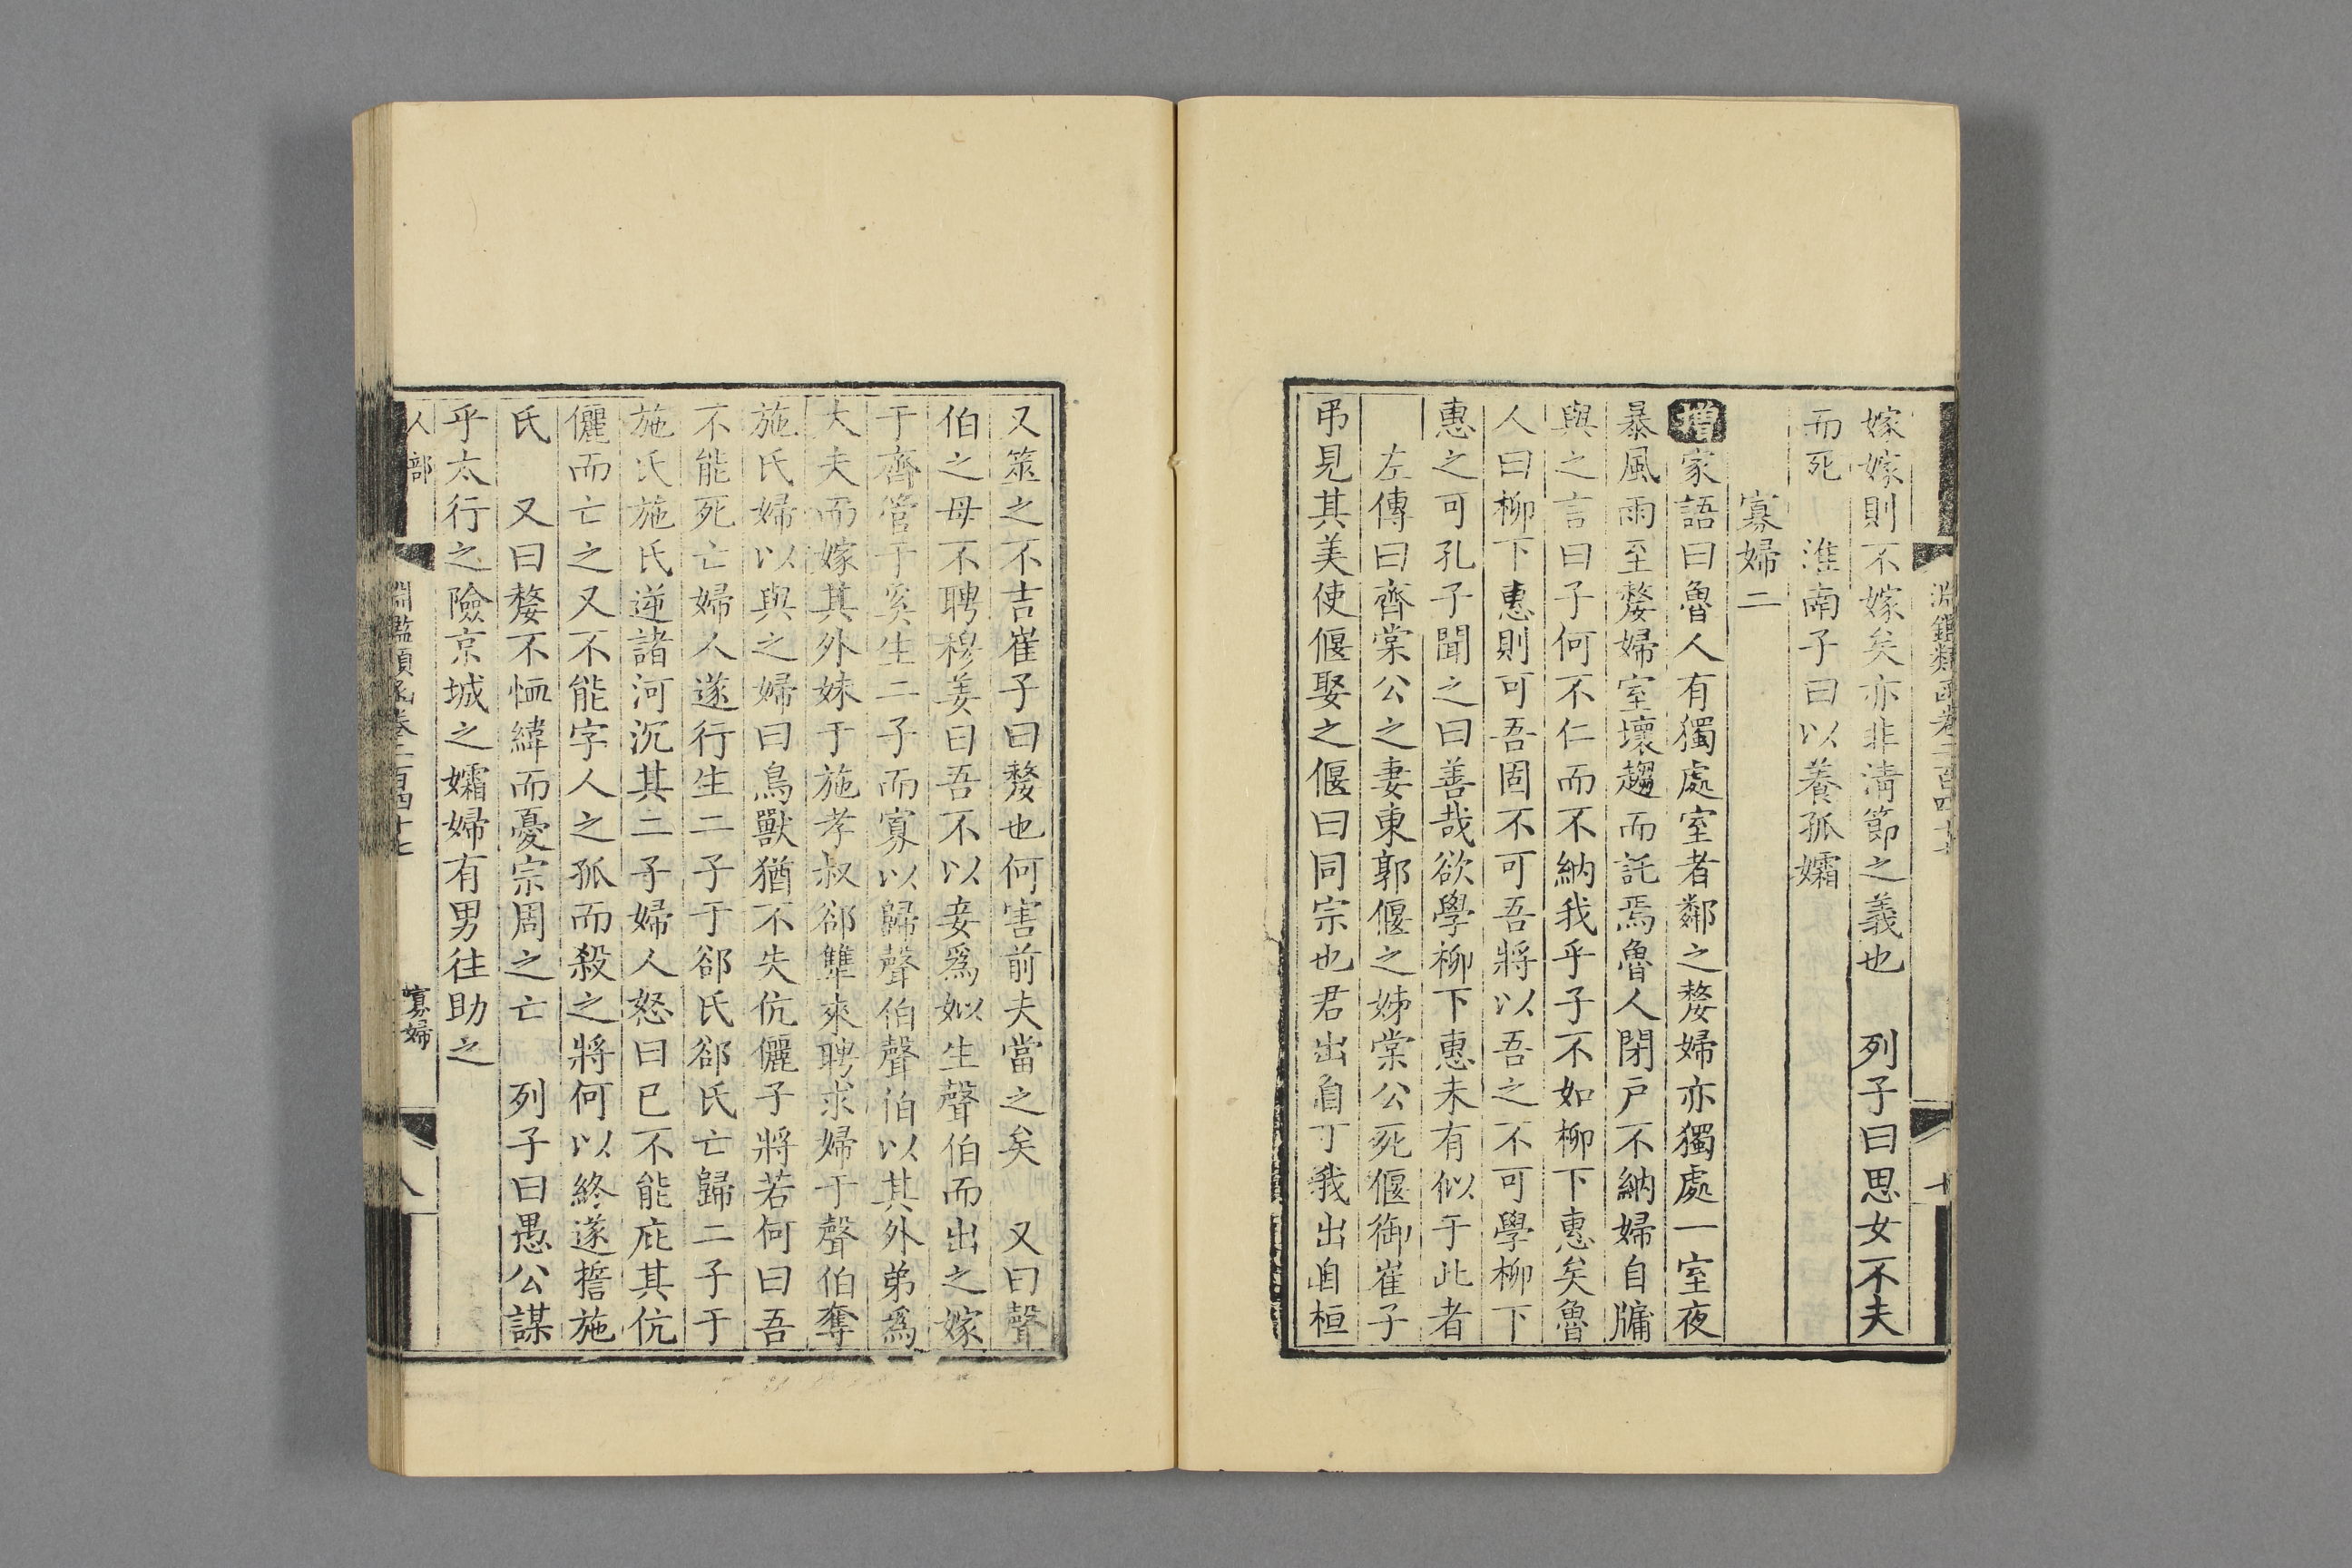 淵鑑類函卷二百四十七
嫁嫁則不嫁矣亦非淸節之義也　列子曰思女不夫
而死　淮南子曰以養孤孀
寡婦二
增家語曰魯人有獨處室者鄰之嫠婦亦獨處一室夜
暴風雨至嫠婦室壞趨而託焉魯人閉戶不納婦自牖
與之言曰子何不仁而不納我乎子不如柳下惠矣魯
人曰柳下惠則可吾固不可吾將以吾之不可學柳下
惠之可孔子聞之曰善哉欲學柳下惠未有似于此者
左傳曰齊棠公之妻東郭偃之姊棠公死偃御崔子
弔見其美使偃娶之偃曰同宗也君出自丁我出自桓
又筮之不吉崔子曰嫠也何害前夫當之矣　又曰聲
伯之母不聘穆姜曰吾不以妾爲姒生聲伯而出之嫁
于齊管于奚生二子而寡以歸聲伯聲伯以其外弟爲
大夫而嫁其外妹于施孝叔郤犨來聘求婦于聲伯奪
施氏婦以與之婦曰鳥獸猶不失伉儷子將若何曰吾
不能死亡婦人遂行生二子于郤氏郤氏亡歸二子于
施氏施氏逆諸河沉其二子婦人怒曰已不能庇其伉
儷而亡之又不能字人之孤而殺之將何以終遂誓施
氏　又曰嫠不恤緯而憂宗周之亡　列子曰愚公謀
乎太行之險京城之孀婦有男往助之
人部　淵鑑類函卷二百四十七　寡婦　八